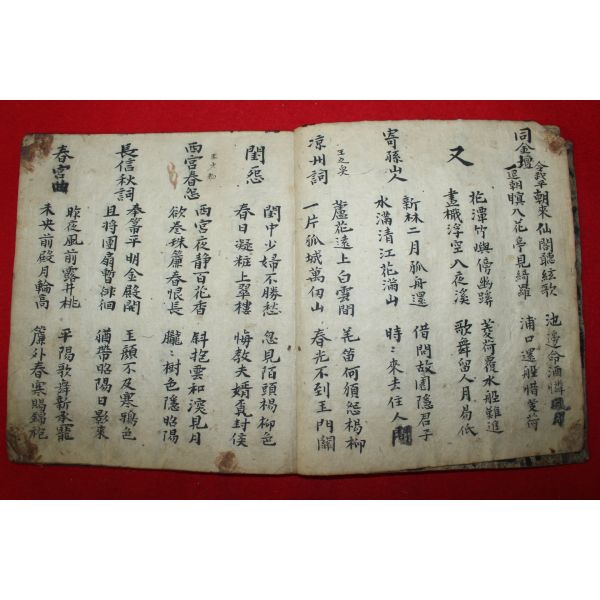 同金壇
令武平
一遊朝
朝來仙閣聽絃歌 池邊命酒憐風月
暝入花亭見綺羅 浦口還船惜芰荷
又
花潭竹嶼傍幽蹊 芰荷覆水船難進
畫檝浮空入夜溪 歌舞留人月易低
寄孫山人
新林二月孤舟還 借問故園隱君子
水滿清江花滿山 時〻來去住人間
凉州詞 王之奐
蘆花遠上白雲間 羌笛何須怨楊柳
一片孤城萬仞山 春光不到玉門關
閨怨
閨中少婦不勝愁 忽見陌頭楊柳色
春日凝粧上翠樓 悔教夫婿覓封侯
西宮春怨
西宮夜静百花香 斜抱雲和深見月
欲卷珠簾春恨長 朧〻樹色隱昭陽
長信秋詞
奉箒平明金殿開 玉顔不及寒鴉色
且將團扇暫徘徊 猶帶昭陽日影來
春宮曲
昨夜風前露井桃 平陽歌舞新承寵
未央前殿月輪高 簾外春寒賜錦袍